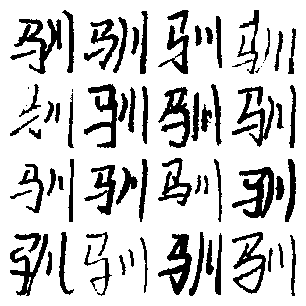 驯驯驯驯
驯驯驯驯
驯驯驯驯
驯驯驯驯